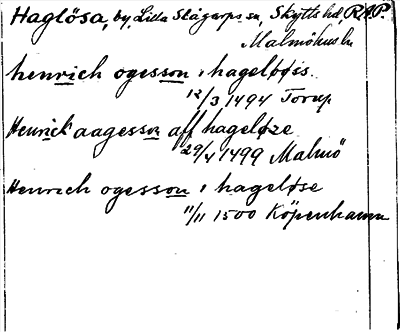 Haglösa, by, Lilla Slågarps sn, Skytts hd, RAP.
Malmöhus ln
henrich ogesson i hageløøss
12/3 1494 Torup
Henrick aagesson aff hageløze
29/4 1499 Malmö
Henrich ogesson i hageløse
11/11 1500 Köpenhamn